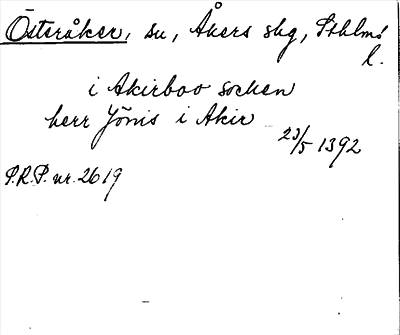 Österåker, sn, Åkers skg, Sthlms
l.
i Akirboo socken
herr Jönis i Akir
23/5 1392
P.R.P. nr. 2619